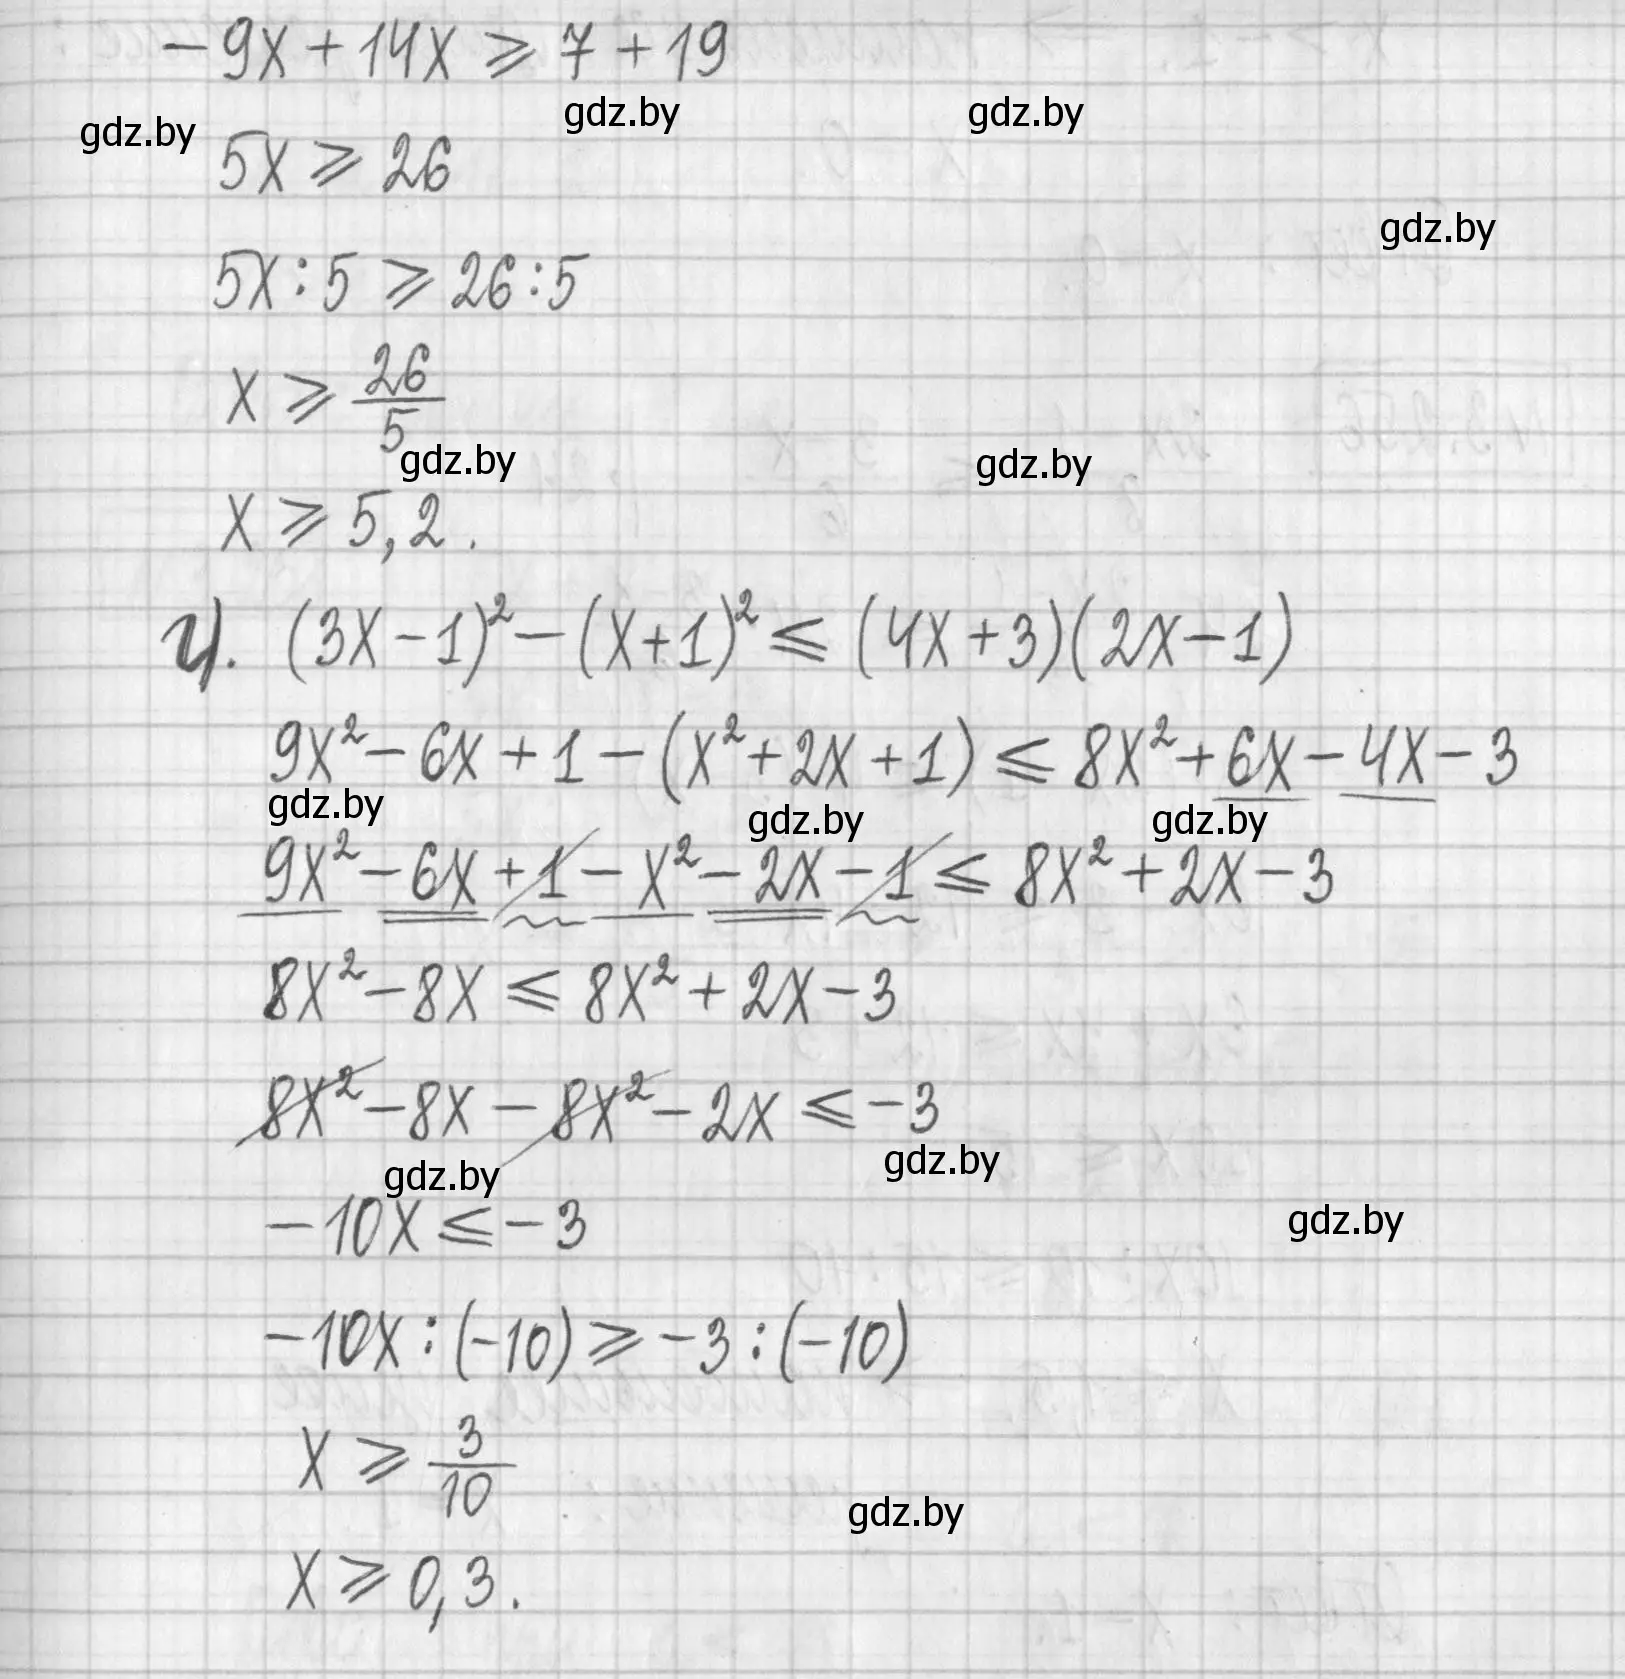 -9x + 14x ⩾ 7 + 19
gdz.by gdz.by gdz.by
5x ⩾ 26
gdz.by
5x : 5 ⩾ 26 : 5
x ⩾ 26/5
gdz.by gdz.by
x ⩾ 5,2.
ч). (3x - 1)² - (x + 1)² ⩽ (4x + 3)(2x - 1)
9x² - 6x + 1 - (x² + 2x + 1) ⩽ 8x² + 6x - 4x - 3
gdz.by gdz.by gdz.by
9x² - 6x + 1 - x² - 2x - 1 ⩽ 8x² + 2x - 3
8x² - 8x ⩽ 8x² + 2x - 3
8x² - 8x - 8x² - 2x ⩽ -3
gdz.by gdz.by
-10x ⩽ -3
gdz.by
-10x : (-10) ⩾ -3 : (-10)
x ⩾ 3/10
gdz.by
x ⩾ 0,3.